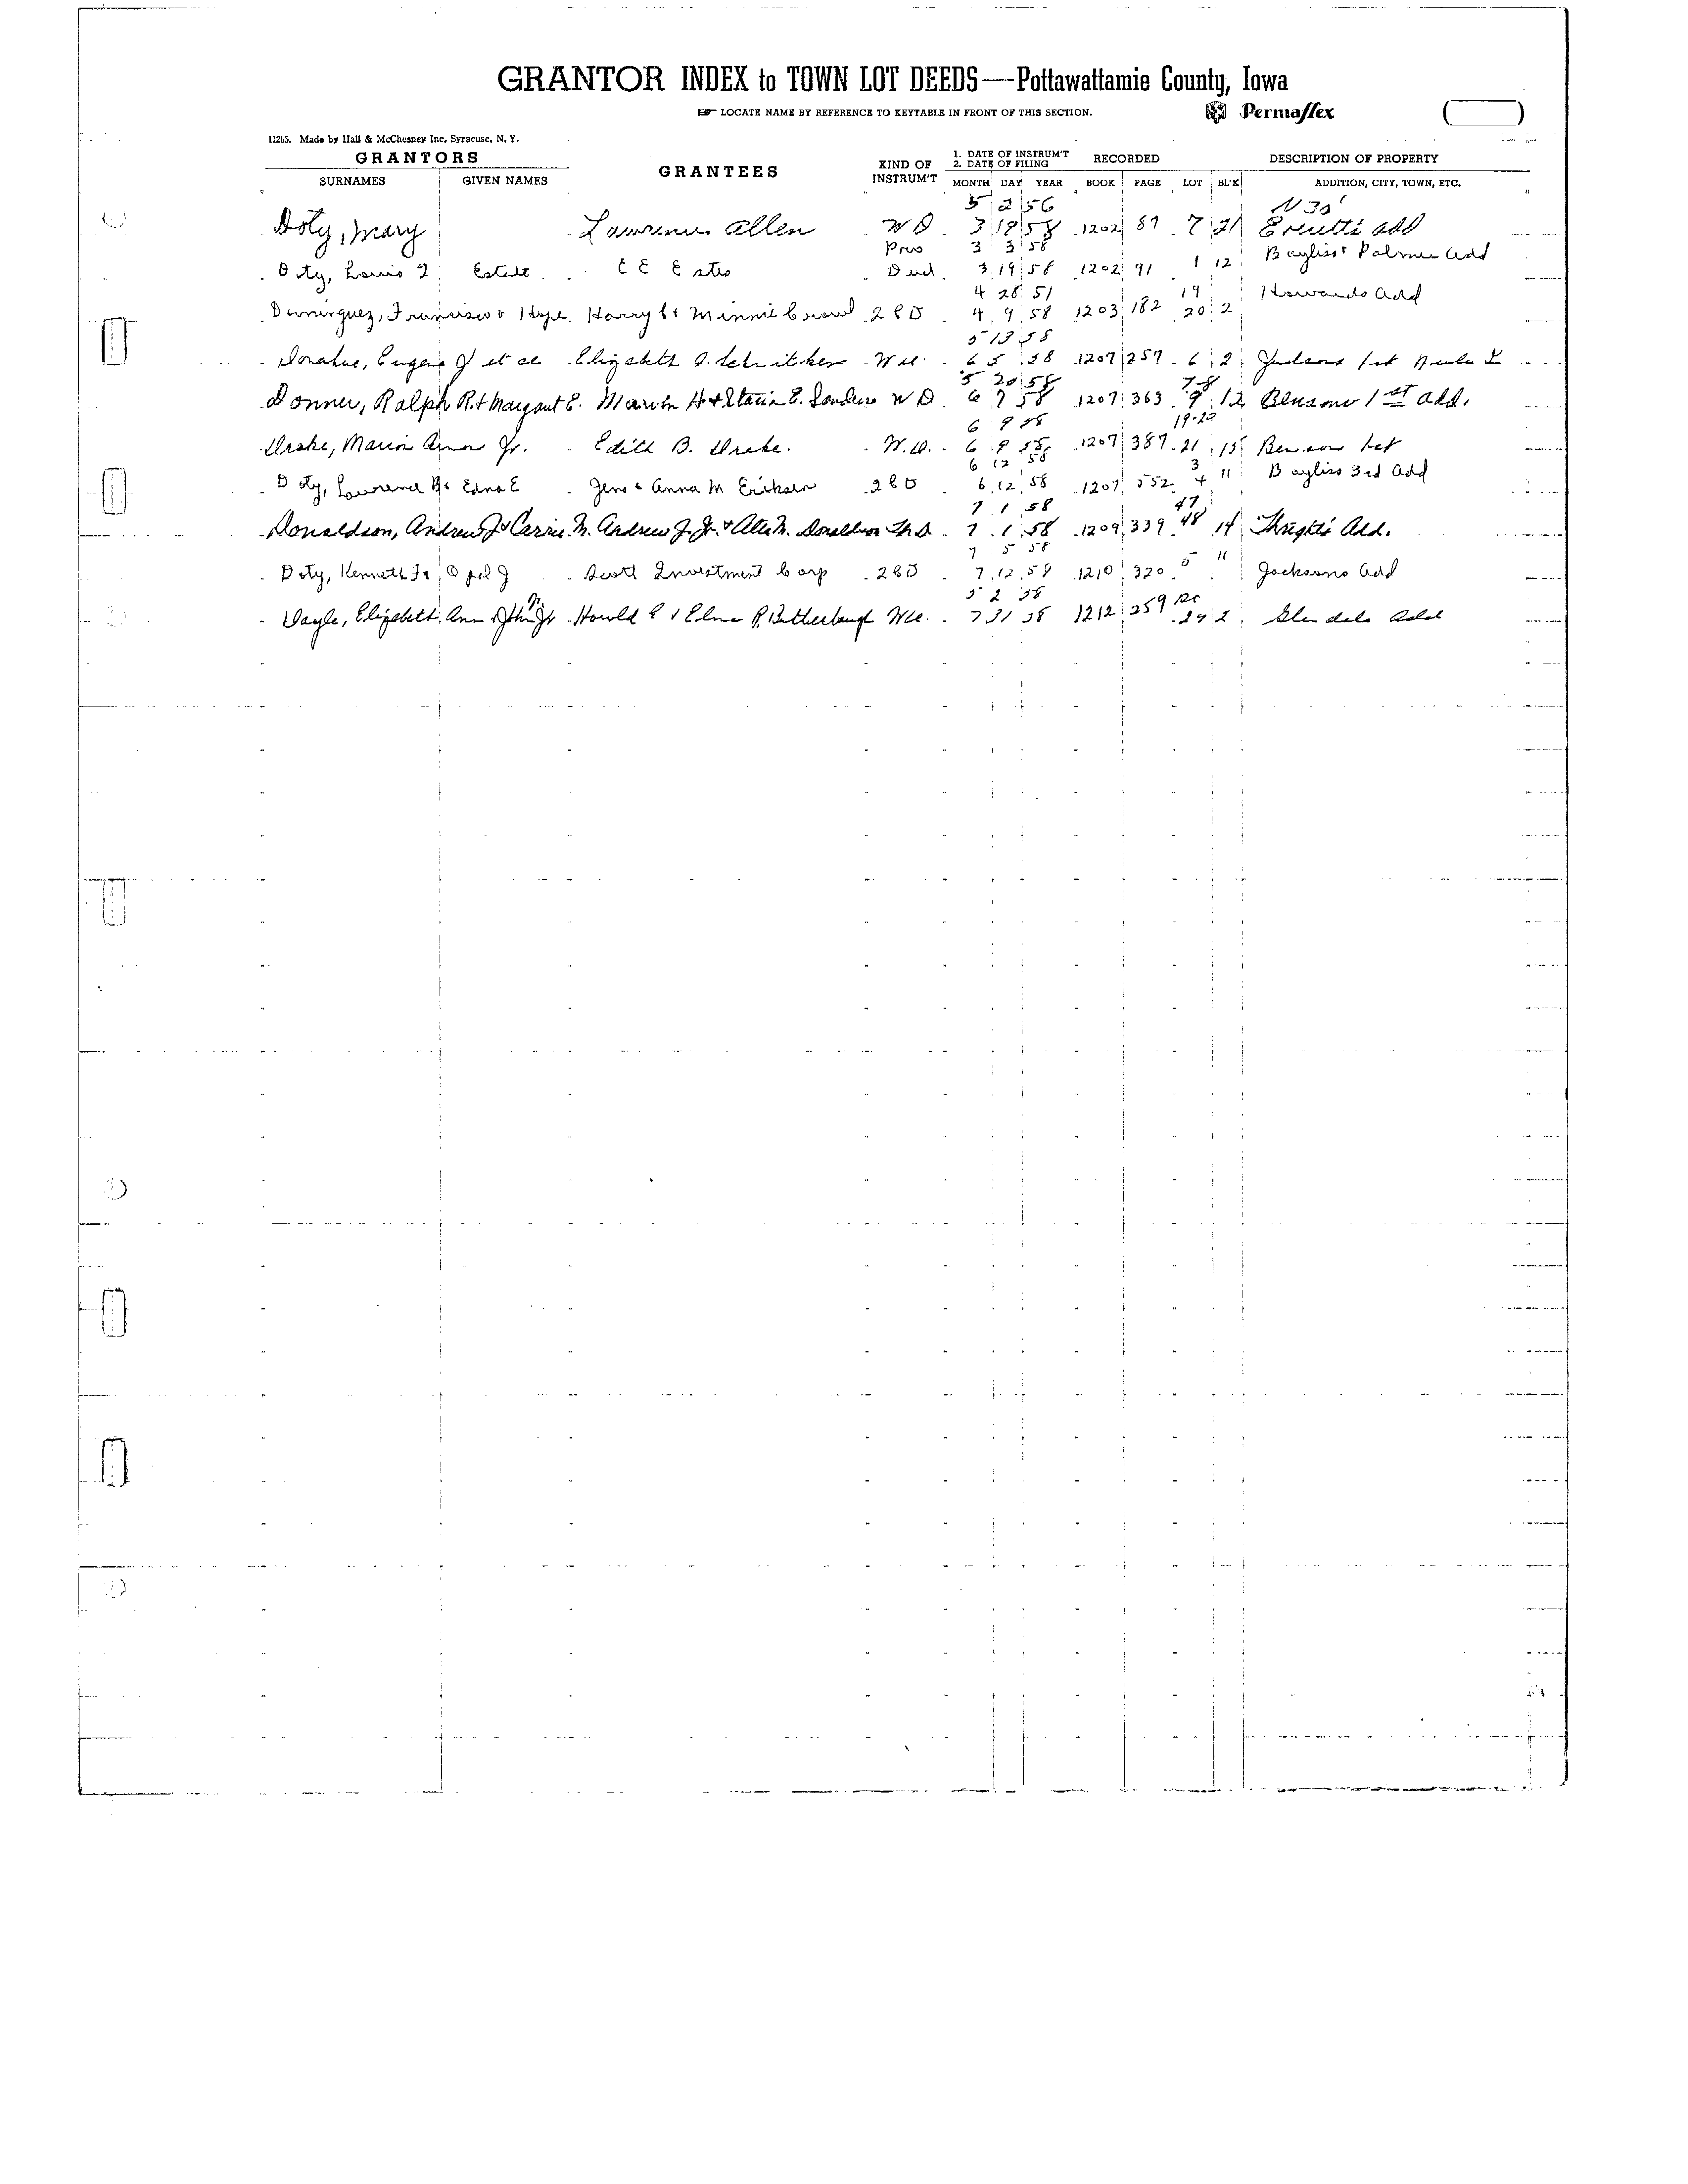 GRANTOR INDEX to TOWN LOT DEEDS—Pottawattamie County, Iowa
LOCATE NAME BY REFERENCE TO KEYTABLE IN FRONT OF THIS SECTION. Permaflex
11265. Made by Hall & McChesney Inc, Syracuse, N. Y.
GRANTORS GRANTEES KIND OF INSTRUM'T 1. DATE OF INSTRUM'T 2. DATE OF FILING RECORDED DESCRIPTION OF PROPERTY
SURNAMES GIVEN NAMES MONTH DAY YEAR BOOK PAGE LOT BL'K ADDITION, CITY, TOWN, ETC.
5 2 56 N 30'
Doty, Mary Lawrence Allen W D 3 18 58 1202 87 7 21 Add
3 3 58
Doty, Louis Estate C E 3 19 58 1202 91 1 12 Bayliss & Palmer Add
4 28 51 19
Dominguez, Francisco & Hope Harry & Minnie 4 9 58 1203 182 20 2 Howards Add
5 13 58
Donahue, Eugene J et al Elizabeth 6 5 58 1207 257 6 2 Judens 1st
5 20 58 7-8
Donner, Ralph R. & Margaret E. Marvin H & E. W D 6 9 58 1207 363 9 12 1st Add.
6 9 58 19-20
Drake, Marion Jr. Edith B. Drake. W.D. 6 9 58 1207 387 21 15 Bensons 1st
6 12 58 3
Doty, Lawrence B & Edna E Jens & Anna M Eriksen 6 12 58 1207 552 4 11 Bayliss 3rd Add
7 1 58 47
Donaldson, Andrew J & Carrie M. Andrew J. Jr. & M. Donaldson 7 1 58 1209 339 48 14 Add.
7 5 58
Doty, Kenneth Jr Opal J Scott Investment Corp 7 12 58 1210 320 5 11 Jacksons Add
5 2 58
Elizabeth Ann & John Jr Harold E & R. 7 31 58 1212 259 29 2 Glendale Add